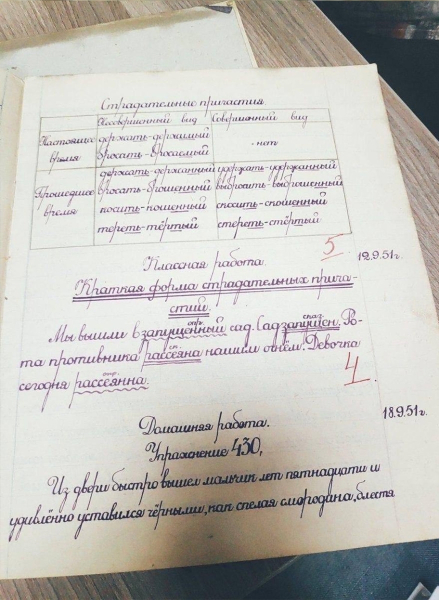 Страдательные причастия
Несовершенный вид Совершенный вид
Настоящее время держать-держимый - нет
бросать-бросаемый
Прошедшее время держать-держанный удержать-удержанный
бросать-брошенный выбросить-выброшенный
носить-ношенный сносить-сношенный
тереть-тёртый стереть-стёртый
5
Классная работа. 12.9.51г.
Краткая форма страдательных прича-
стий.
опр. сказ.
Мы вышли в запущенный сад. Сад запущен. Ро-
ск.
та противника рассеяна нашим огнём. Девочка
опр.
сегодня рассеянна.
4.
18.9.51г.
Домашняя работа.
Упражнение 430,
Из двери быстро вышел мальчик лет пятнадцати и
удивлённо уставился чёрными, как спелая смородина, блестя